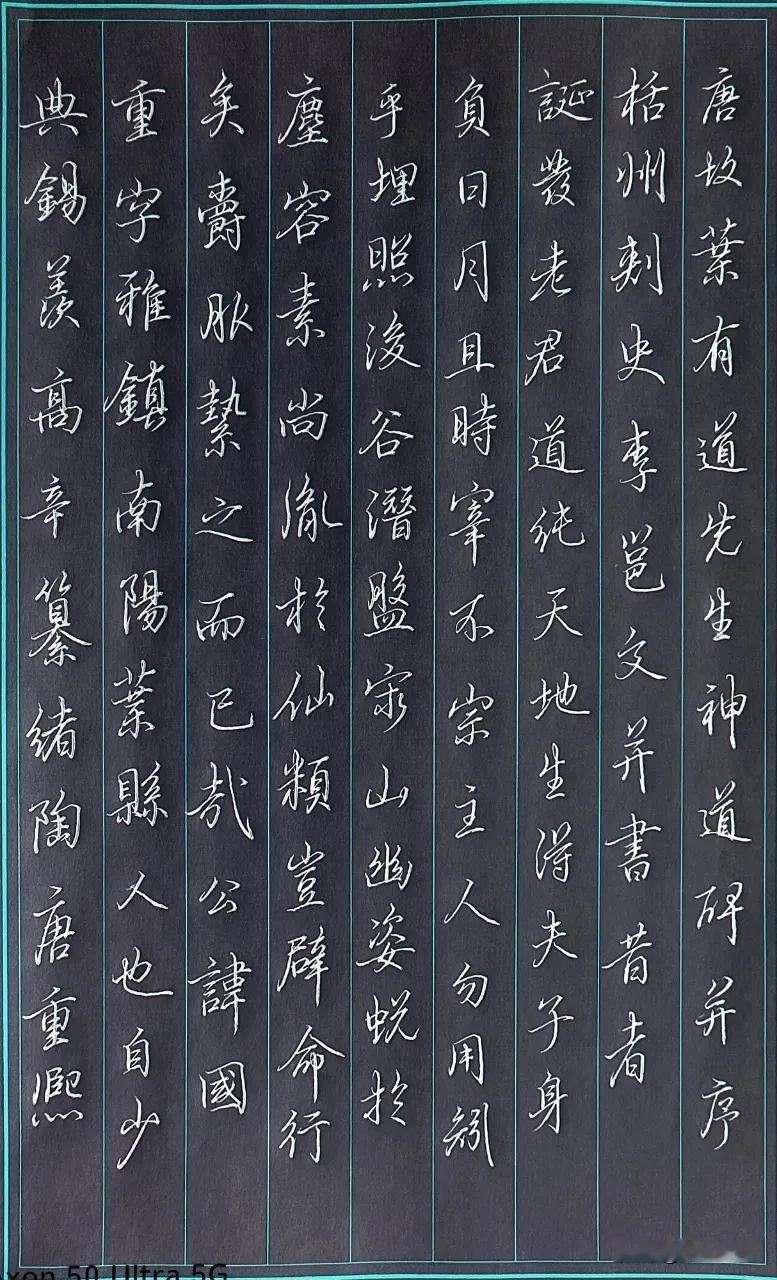 唐故葉有道先生神道碑并序
栝州刺史李邕文并書昔者
誕發老君道純天地生得夫子身
負日月且時宰不宗主人勿用矧
乎埋照浚谷潛盤穷山幽姿蜕於
塵容素尚胤於仙類豈辟命行
矣爵服縶之而已哉公諱國
重字雅鎮南陽葉縣人也自少
典錫羨高辛纂緒陶唐重熙
xon 50 Ultra 5G